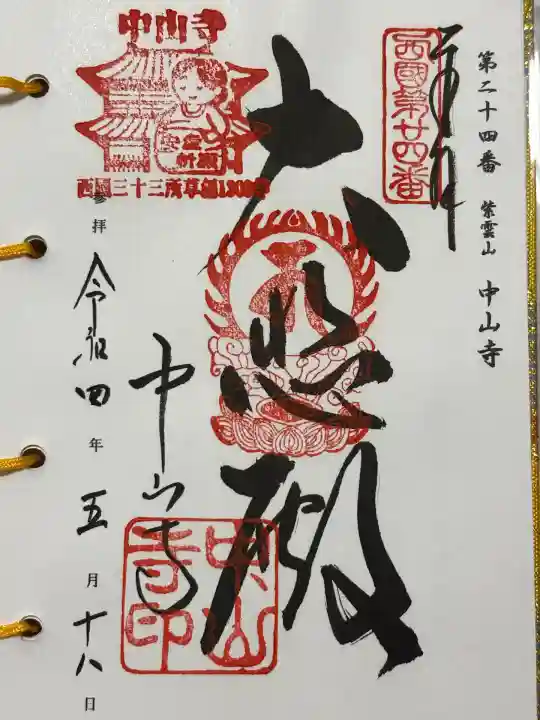 第二十四番 紫雲山 中山寺
奉拝
西國第廿四番
大悲殿
中山寺
中山寺印
中山寺
安産祈願
西国三十三所草創1300年
参拝 令和四年五月十八日